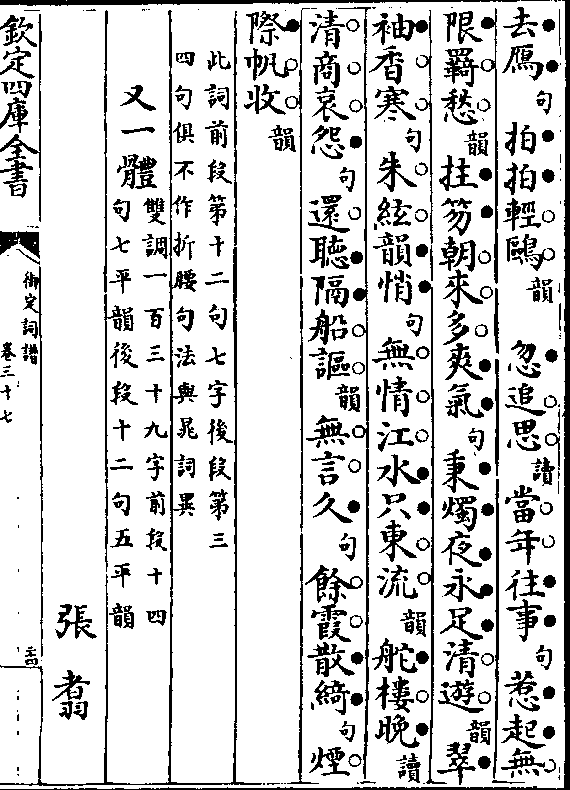 去鴈句拍拍輕鷗韻忽追思讀當年往事句惹起無
限羇愁韻拄笏朝來多爽氣句秉燭夜永足清遊韻翠
袖香寒句朱絃韻悄句無情江水只東流韻舵樓晚讀
清商哀怨句還聽隔船謳韻無言久句餘霞散綺句煙
際帆收韻
此詞前段第十二句七字後段第三
四句俱不作折腰句法與晁詞異
又一體雙調一百三十九字前段十四
句七平韻後段十二句五平韻
張翥
欽定四庫全書
御定詞譜
卷三十七